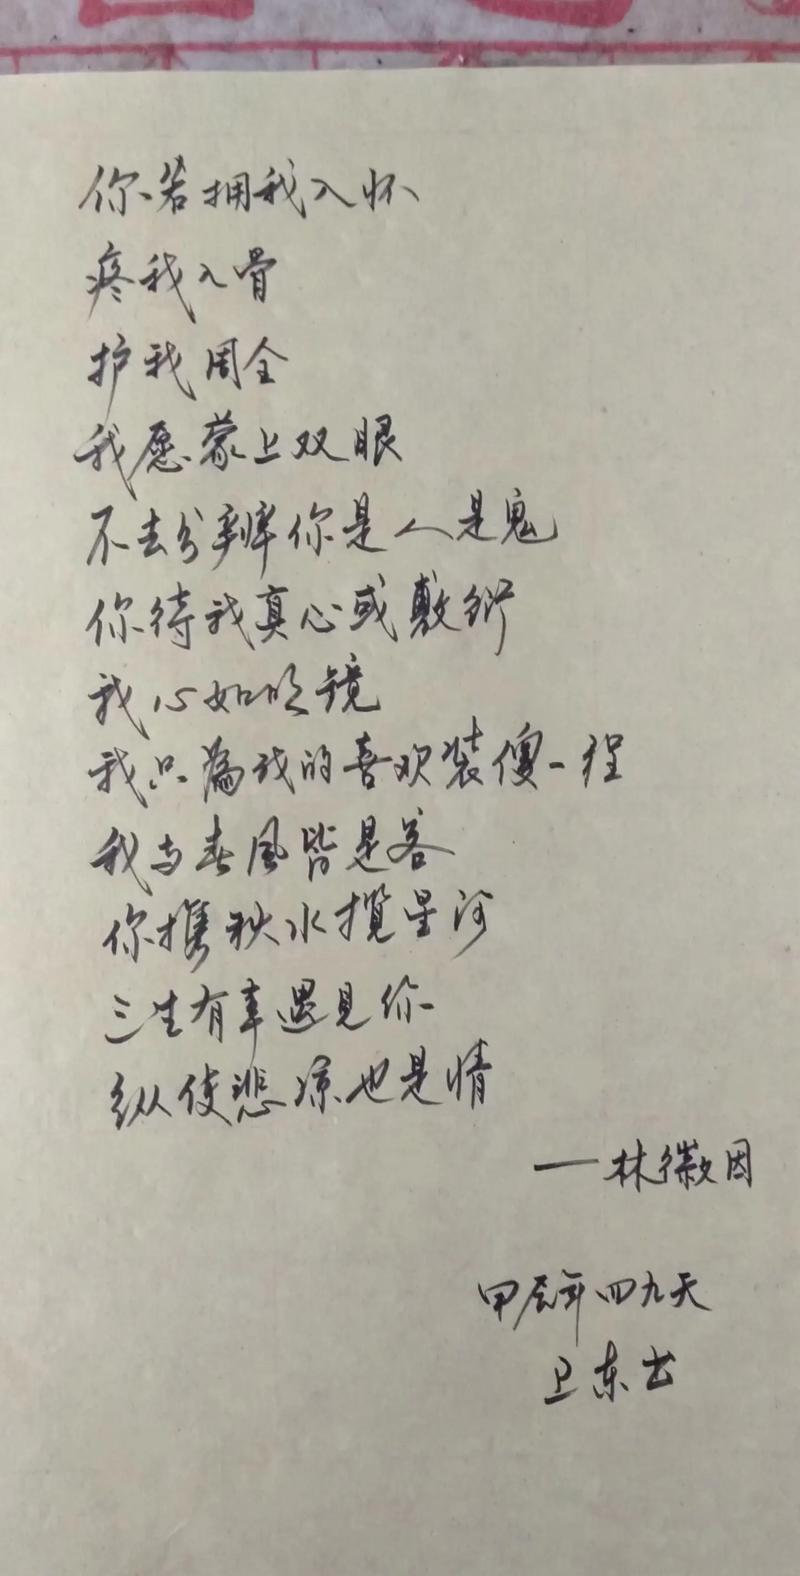 你若拥我入怀
疼我入骨
护我周全
我愿蒙上双眼
不去分辨你是人是鬼
你待我真心或敷衍
我心如明镜
我只為我的喜欢装傻一程
我与春風皆是客
你携秋水揽星河
三生有幸遇见你
纵使悲凉也是情
——林徽因
甲辰年四九天
卫东书